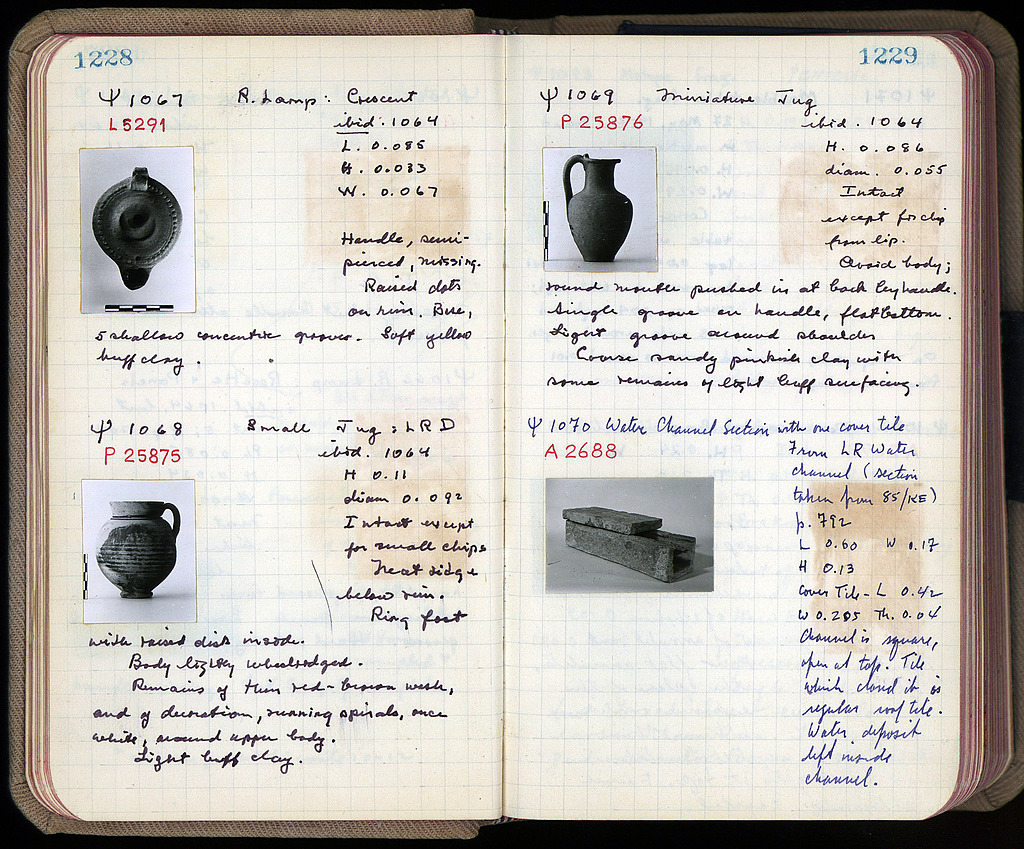 1228
Ψ 1067 R. Lamp: Crescent
L 5291
ibid. 1064
L. 0.085
H. 0.033
W. 0.067
Handle, semi-
pierced, missing.
Raised dots
on rim. Base,
5 shallow concentric grooves. Soft yellow
buff clay.
Ψ 1068 Small Jug: LRD
P 25875
ibid. 1064
H 0.11
diam 0.092
Intact except
for small chips
Neat ridge
below rim.
Ring foot
with raised disk inside.
Body lightly wheelridged.
Remains of thin red-brown wash,
and of decoration, running spirals, once
white, around upper body.
Light buff clay.
1229
Ψ 1069 Miniature Jug
P 25876
ibid. 1064
H. 0.086
diam. 0.055
Intact
except for chip
from lip.
Ovoid body;
round mouth pushed in at back by handle.
Single groove on handle, flat bottom.
Light groove around shoulder
Coarse sandy pinkish clay with
some remains of light buff surfacing.
Ψ 1070 Water Channel Section with one cover tile
A 2688
From LR Water
channel (section
taken from 85/KE)
p. 792
L 0.60 W 0.17
H 0.13
Cover Tile - L 0.42
W 0.205 Th. 0.04
Channel is square,
open at top. Tile
which closed it is
regular roof tile.
Water deposit
left inside
channel.